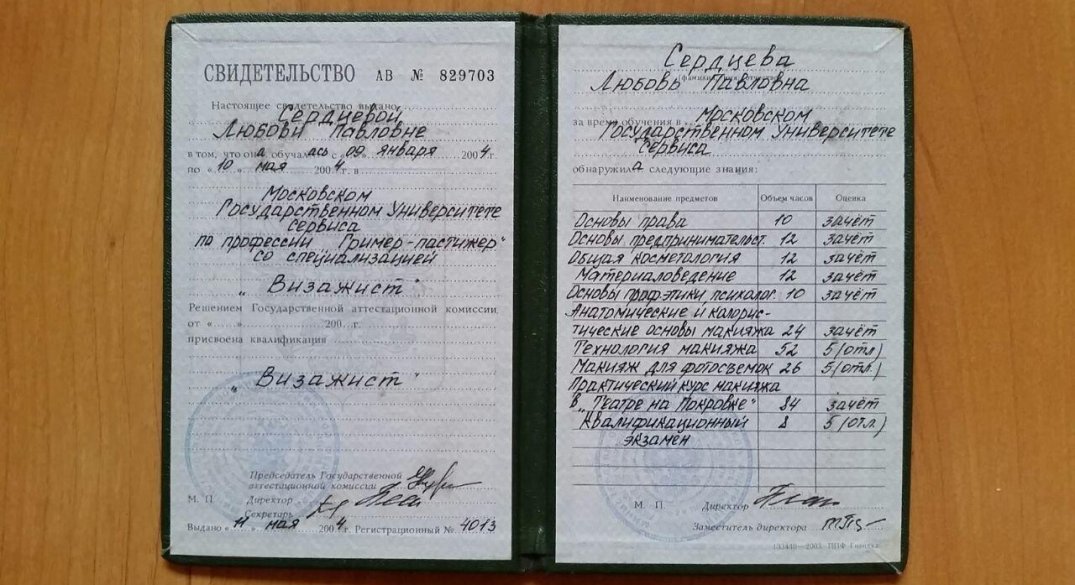 СВИДЕТЕЛЬСТВО АВ № 829703
Настоящее свидетельство выдано
Сердцевой
Любови Павловне
в том, что она обучалась с „09 января 2004 г.
по «10» мая 2004 г. в
Московском
Государственном Университете
Сервиса
по профессии "Гример-пастижер"
со специализацией
„Визажист"
Решением Государственной аттестационной комиссии
от «......» 200 г.
присвоена квалификация
„Визажист"
Председатель Государственной
аттестационной комиссии
М. П. Директор
Секретарь
Выдано «11» мая 2004 г. Регистрационный № 4013
Сердцева
Любовь Павловна
за время обучения в Московском
Государственном Университете
Сервиса
обнаружила следующие знания:
Наименование предметов Объем часов Оценка
Основы права 10 зачёт
Основы предпринимательст. 12 зачёт
Общая косметология 12 зачёт
Материаловедение 12 зачёт
Основы проф.этики, психолог. 10 зачёт
Анатомические и калорис-
тические основы макияжа 24 зачёт
Технология макияжа 52 5 (отл)
Макияж для фотосъемок 26 5 (отл.)
Практический курс макияжа
в „Театре на Покровке" 34 зачёт
Квалификационный 8 5 (отл.)
экзамен
М. П. Директор
Заместитель директора